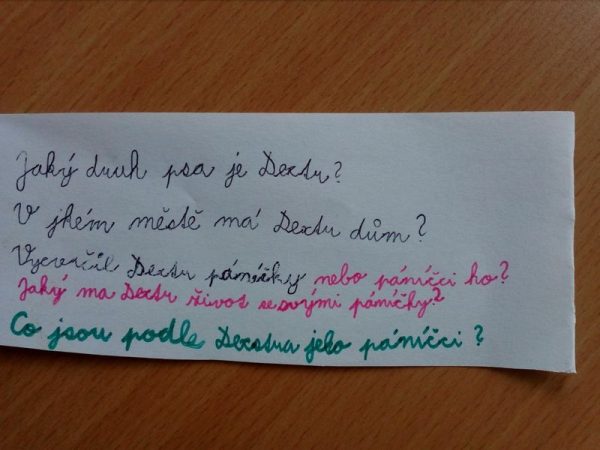 Jaký druh psa je Dextr?
V jkém městě má Dextr dům?
Vycvičil Dextr páníčky nebo páníčci ho?
Jaký ma Dextr život se svými páníčky?
Co jsou podle Dexstra jeho páníčci?